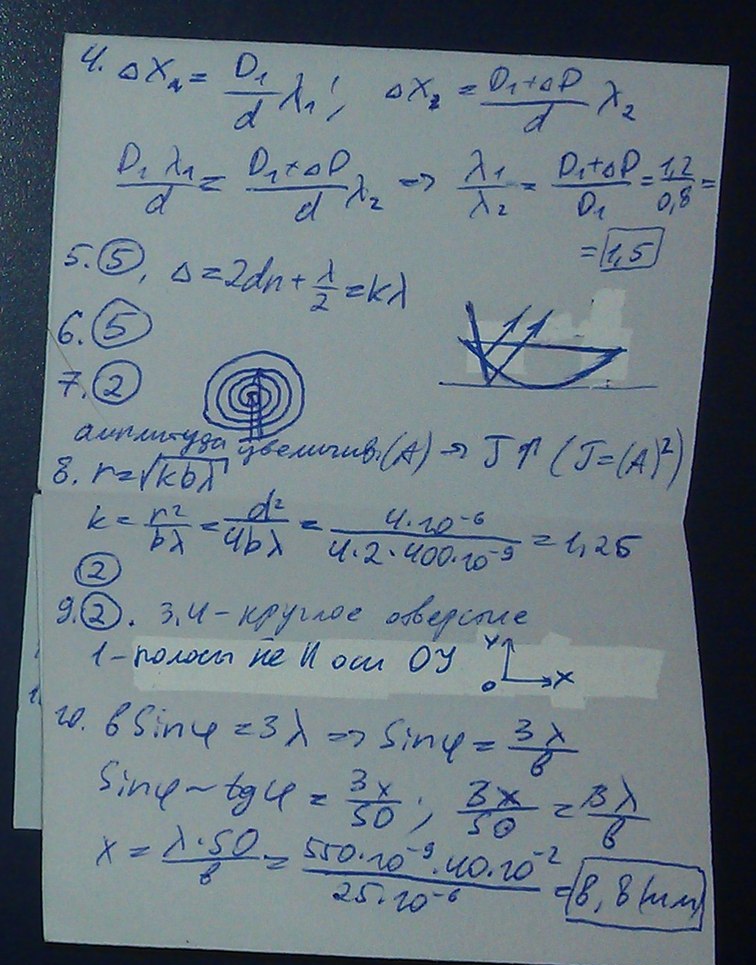 4. Δx₁ = D₁/d λ₁; Δx₂ = (D₁+ΔD)/d λ₂
D₁λ₁/d = (D₁+ΔD)/d λ₂ => λ₁/λ₂ = (D₁+ΔD)/D₁ = 1,2/0,8 =
= 1,5
5. ⑤, Δ = 2dn + λ/2 = kλ
6. ⑤
7. ②
амплитуда увеличив. (A) → J↑ (J=(A)²)
8. r = √(kbλ)
k = r²/bλ = d²/4bλ = 4·10⁻⁶/(4·2·400·10⁻⁹) = 1,25
②
9. ②. 3,4 – круглое отверстие
1 – полосы не II оси OY
Y
O X
10. b sinφ = 3λ => sinφ = 3λ/b
sinφ ~ tgφ = 3x/50; 3x/50 = 3λ/b
x = λ·50/b = 550·10⁻⁹·40·10⁻²/(25·10⁻⁶) = 8,8 (мм)